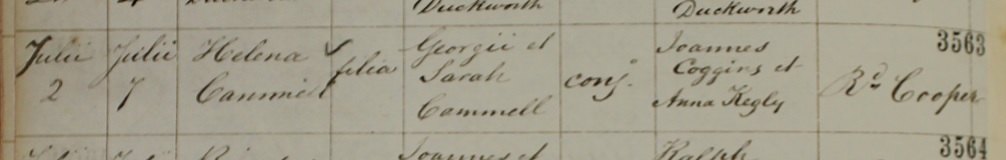 Duckworth Duckworth
Julii Julii Helena filia Georgii et conj. Joannes Rd. Cooper 3563
2 7 Cammell Sarah Coggins et
Cammell Anna Kegly
Joannes et Ralph 3564